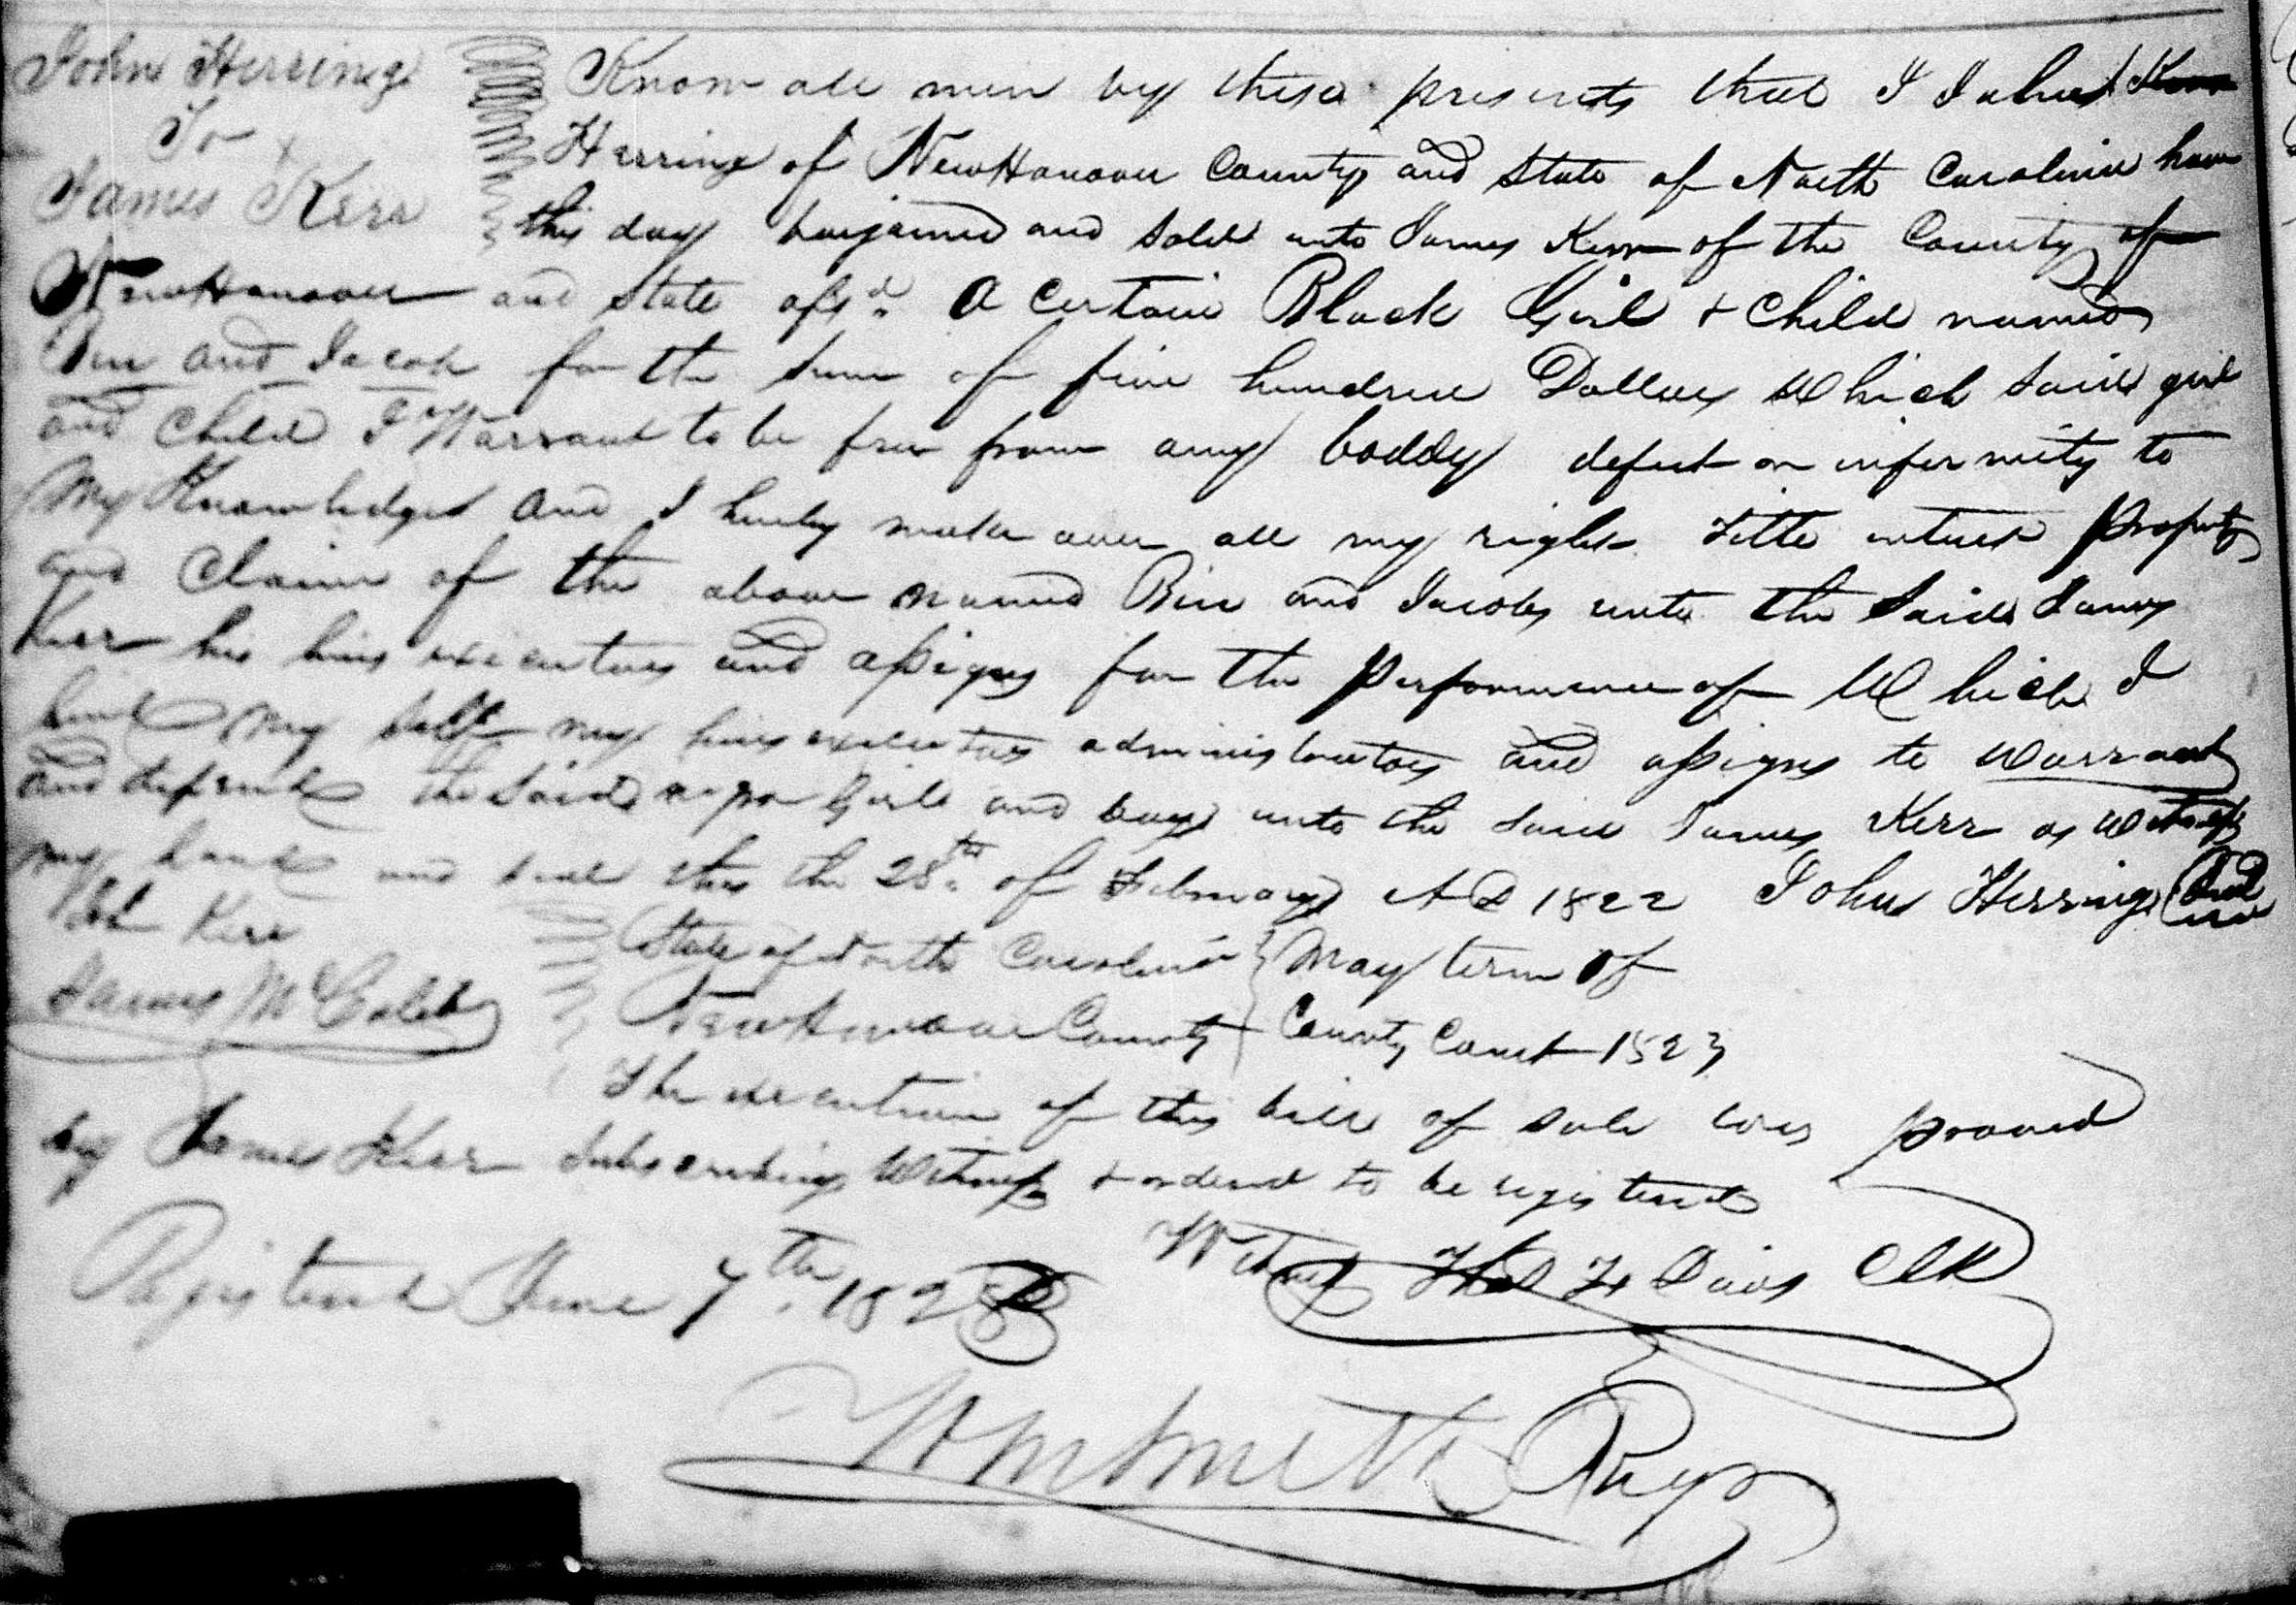 John Herring
To
James Kerr
Know all men by these presents that I John
Herring of NewHanover County and State of North Carolina have
this day bargained and sold unto James Kerr of the County of
NewHanover and State afsd. A Certain Black Girl & Child named
and Jacob for the sum of five hundred Dollars Which said girl
and Child I Warrant to be free from any boddy defect or infirmity to
My Knowledge and I hereby make over all my right Title interest property
and Claim of the above named and Jacob unto the Said James
Kerr his heirs executors and assigns for the Performance of Which I
bind my self my heirs executors administrators and assigns to Warrant
and defend the Said negro Girl and boy unto the said James Kerr as Witness
my hand and seal this the 28th. of February AD 1822 John Herring Seal
Kerr
James McCaleb
State of North Carolina } May term of
NewHanover County } County Court 1823
The execution of this bill of sale was proved
by James Kerr Subscribing Witness & ordered to be registered
Witness Thos F Davis Clk
Registered June 7th. 182